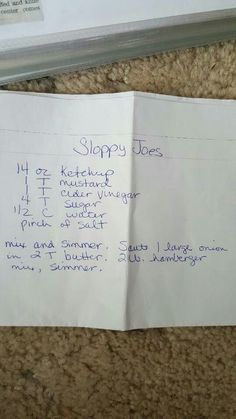 center comes
Sloppy Joes
14 oz Ketchup
1 T mustard
1 T cider vinegar
4 T sugar
1/2 C water
pinch of salt
mix and simmer. Saute 1 large onion
in 2 T butter. 2 lb. hamberger
mix, simmer.